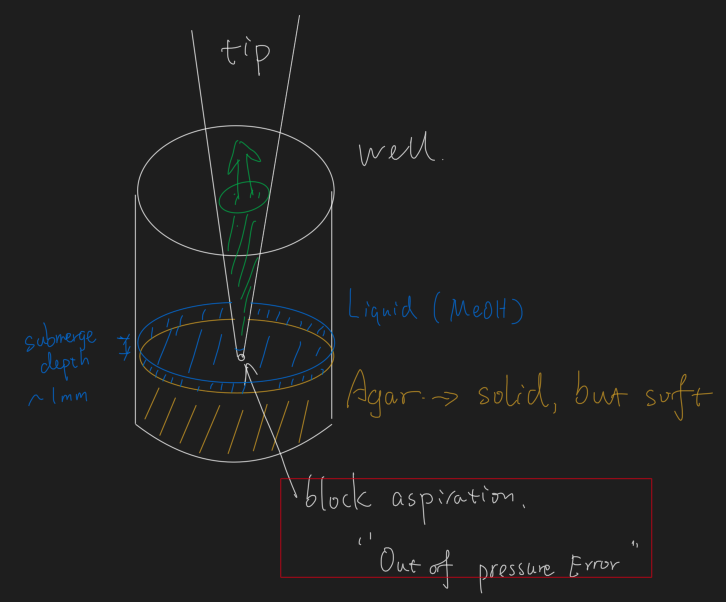 tip
well.
Liquid (MeOH)
submerge
depth
~1mm
Agar. → solid, but soft
block aspiration.
"Out of pressure Error"